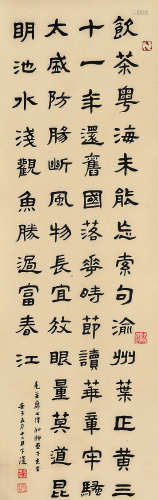 飲茶粵海未能忘索句渝州葉正黃三
十一年還舊國落花時節讀華章牢騷
太盛防腸斷風物長宜放眼量莫道昆
明池水淺觀魚勝過富春江